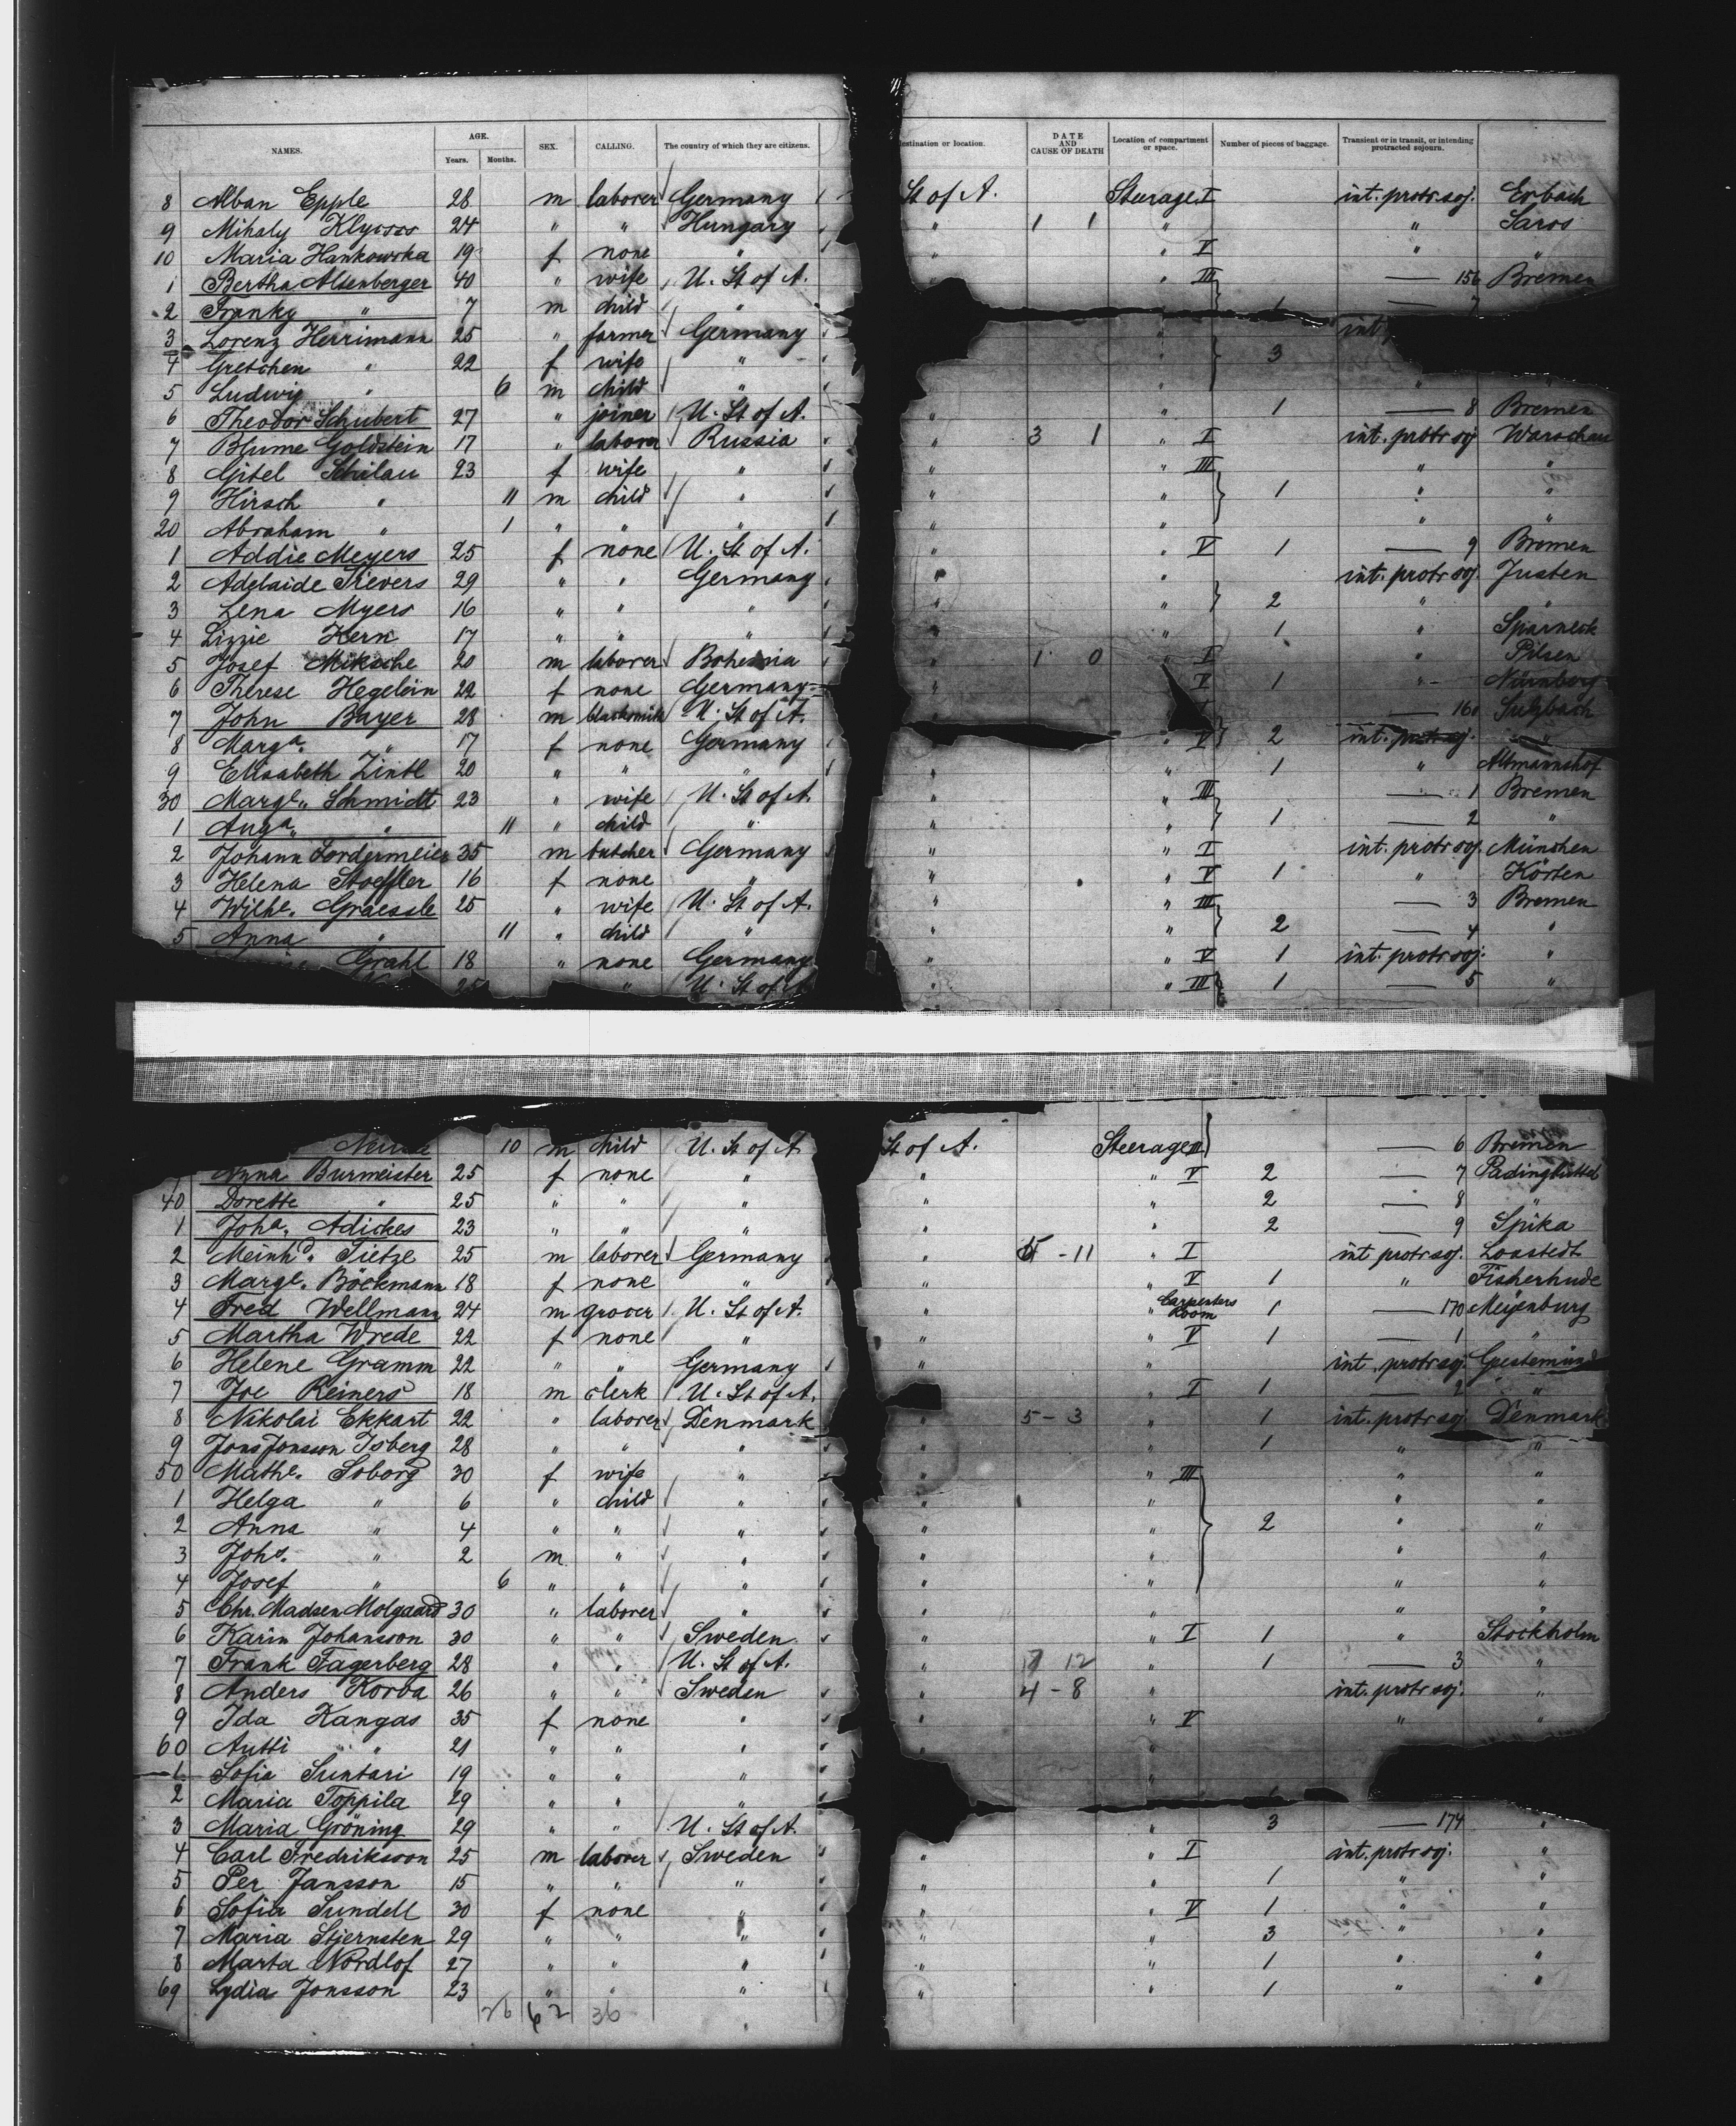 NAMES. AGE. Years. Months. SEX. CALLING. The country of which they are citizens. destination or location. DATE AND CAUSE OF DEATH Location of compartment or space. Number of pieces of baggage. Transient or in transit, or intending protracted sojourn.
8 Alban Epple 28 m laborer Germany St of A. Steerage I int. protr. soj. Erbach
9 Mihaly 24 " " Hungary " 1 1 " " Saros
10 Maria Hankowska 19 f none " " " V " "
1 Bertha Alsenberger 40 " wife U. St of A. " III — 156 Bremen
2 Franky " 7 m child " 1 — 7
3 Lorenz Herrimann 25 " farmer Germany " int
4 Gretchen " 22 f wife " " 3
5 Ludwig " 6 m child " " " "
6 Theodor Schubert 27 " joiner U. St of A. " " 1 — 8 Bremen
7 Blume Goldstein 17 " laborer Russia " 3 1 " I int. protr soj Warschau
8 Gitel Schilau 23 f wife " " " III " "
9 Hirsch " 11 m child " " " 1 " "
20 Abraham " 1 " " " " " " "
1 Addie Meyers 25 f none U. St of A. " " V 1 — 9 Bremen
2 Adelaide Sievers 29 " " Germany " " int. protr soj. Justen
3 Lena Myers 16 " " " " " 2 " "
4 Lizzie Kern 17 " " " " " 1 " Sparneck
5 Josef Miksche 20 m laborer Bohemia " 1 0 " I " Pilsen
6 Therese Hegelein 22 f none Germany " " V 1 " Nürnberg
7 John Bayer 28 m blacksmith U. St of A. I — 160 Sulzbach
8 Marga. " 17 f none Germany " V 2 int. protr soj. "
9 Elisabeth Zintl 20 " " " " " 1 " Altmannshof
30 Marge. Schmidt 23 " wife U. St of A. " " III — 1 Bremen
1 Auga. " 11 " child " " " 1 — 2 "
2 Johann Sordermeier 35 m butcher Germany " " I int. protr soj. München
3 Helena Stoeffler 16 f none " " " V 1 " Körten
4 Wilhe. Graessle 25 " wife U. St of A. " " III — 3 Bremen
5 Anna " 11 " child " " " 2 — 4 "
Grahl 18 " none Germany " " V 1 int. protr soj. "
25 " U. St of A " " III 1 — 5 "
10 m child U. St of A St of A. Steerage — 6 Bremen
Anna Burmeister 25 f none " " " V 2 — 7 Padingbüttel
40 Dorette " 25 " " " " " 2 — 8 "
1 Joha. Adickes 23 " " " " " 2 — 9 Spika
2 Meinhd. Tietze 25 m laborer Germany " 5 - 11 " I int protr soj. Loxstedt
3 Marge. Böckmann 18 f none " " " V 1 " Fisherhude
4 Fred Wellmann 24 m grocer U. St of A. " " Carpenters Room 1 — 170 Meyenburg
5 Martha Wrede 22 f none " " " V 1 — 1 "
6 Helene Gramm 22 " " Germany " " int. protr soj. Geestemünd
7 Joe Reiners 18 m clerk U. St of A. " I 1 — 2 "
8 Nikolai Ekkart 22 " laborer Denmark " 5 - 3 " 1 int. protr soj Denmark
9 Jons Jonsson Isberg 28 " " " " " 1 " "
50 Mathe. Soborg 30 f wife " " " III " "
1 Helga " 6 " child " " " " "
2 Anna " 4 " " " " " 2 " "
3 Johs. " 2 m " " " " " "
4 Josef " 6 " " " " " " "
5 Chr. Madsen Molgaard 30 " laborer " " " "
6 Karin Johansson 30 " " Sweden " " I 1 " Stockholm
7 Frank Fagerberg 28 " " U. St of A. " 12 " 1 — 3 "
8 Anders Korva 26 " " Sweden " 4 - 8 " int. protr soj. "
9 Ida Kangas 35 f none " " " V " "
60 Antti " 21 " " " " "
1 Sofia Suntari 19 " " " "
2 Maria Toppila 29 " " "
3 Maria Gröning 29 " " U. St of A. " 3 — 174 "
4 Carl Fredriksson 25 m laborer Sweden " " I int. protr soj. "
5 Per Jansson 15 " " " " " 1 " "
6 Sofia Sundell 30 f none " " " V 1 " "
7 Maria Stjernsten 29 " " " " " 3 " "
8 Marta Nordlof 27 " " " " " 1 " "
69 Lydia Jonsson 23 " " " " " 1 " "
26 62 36